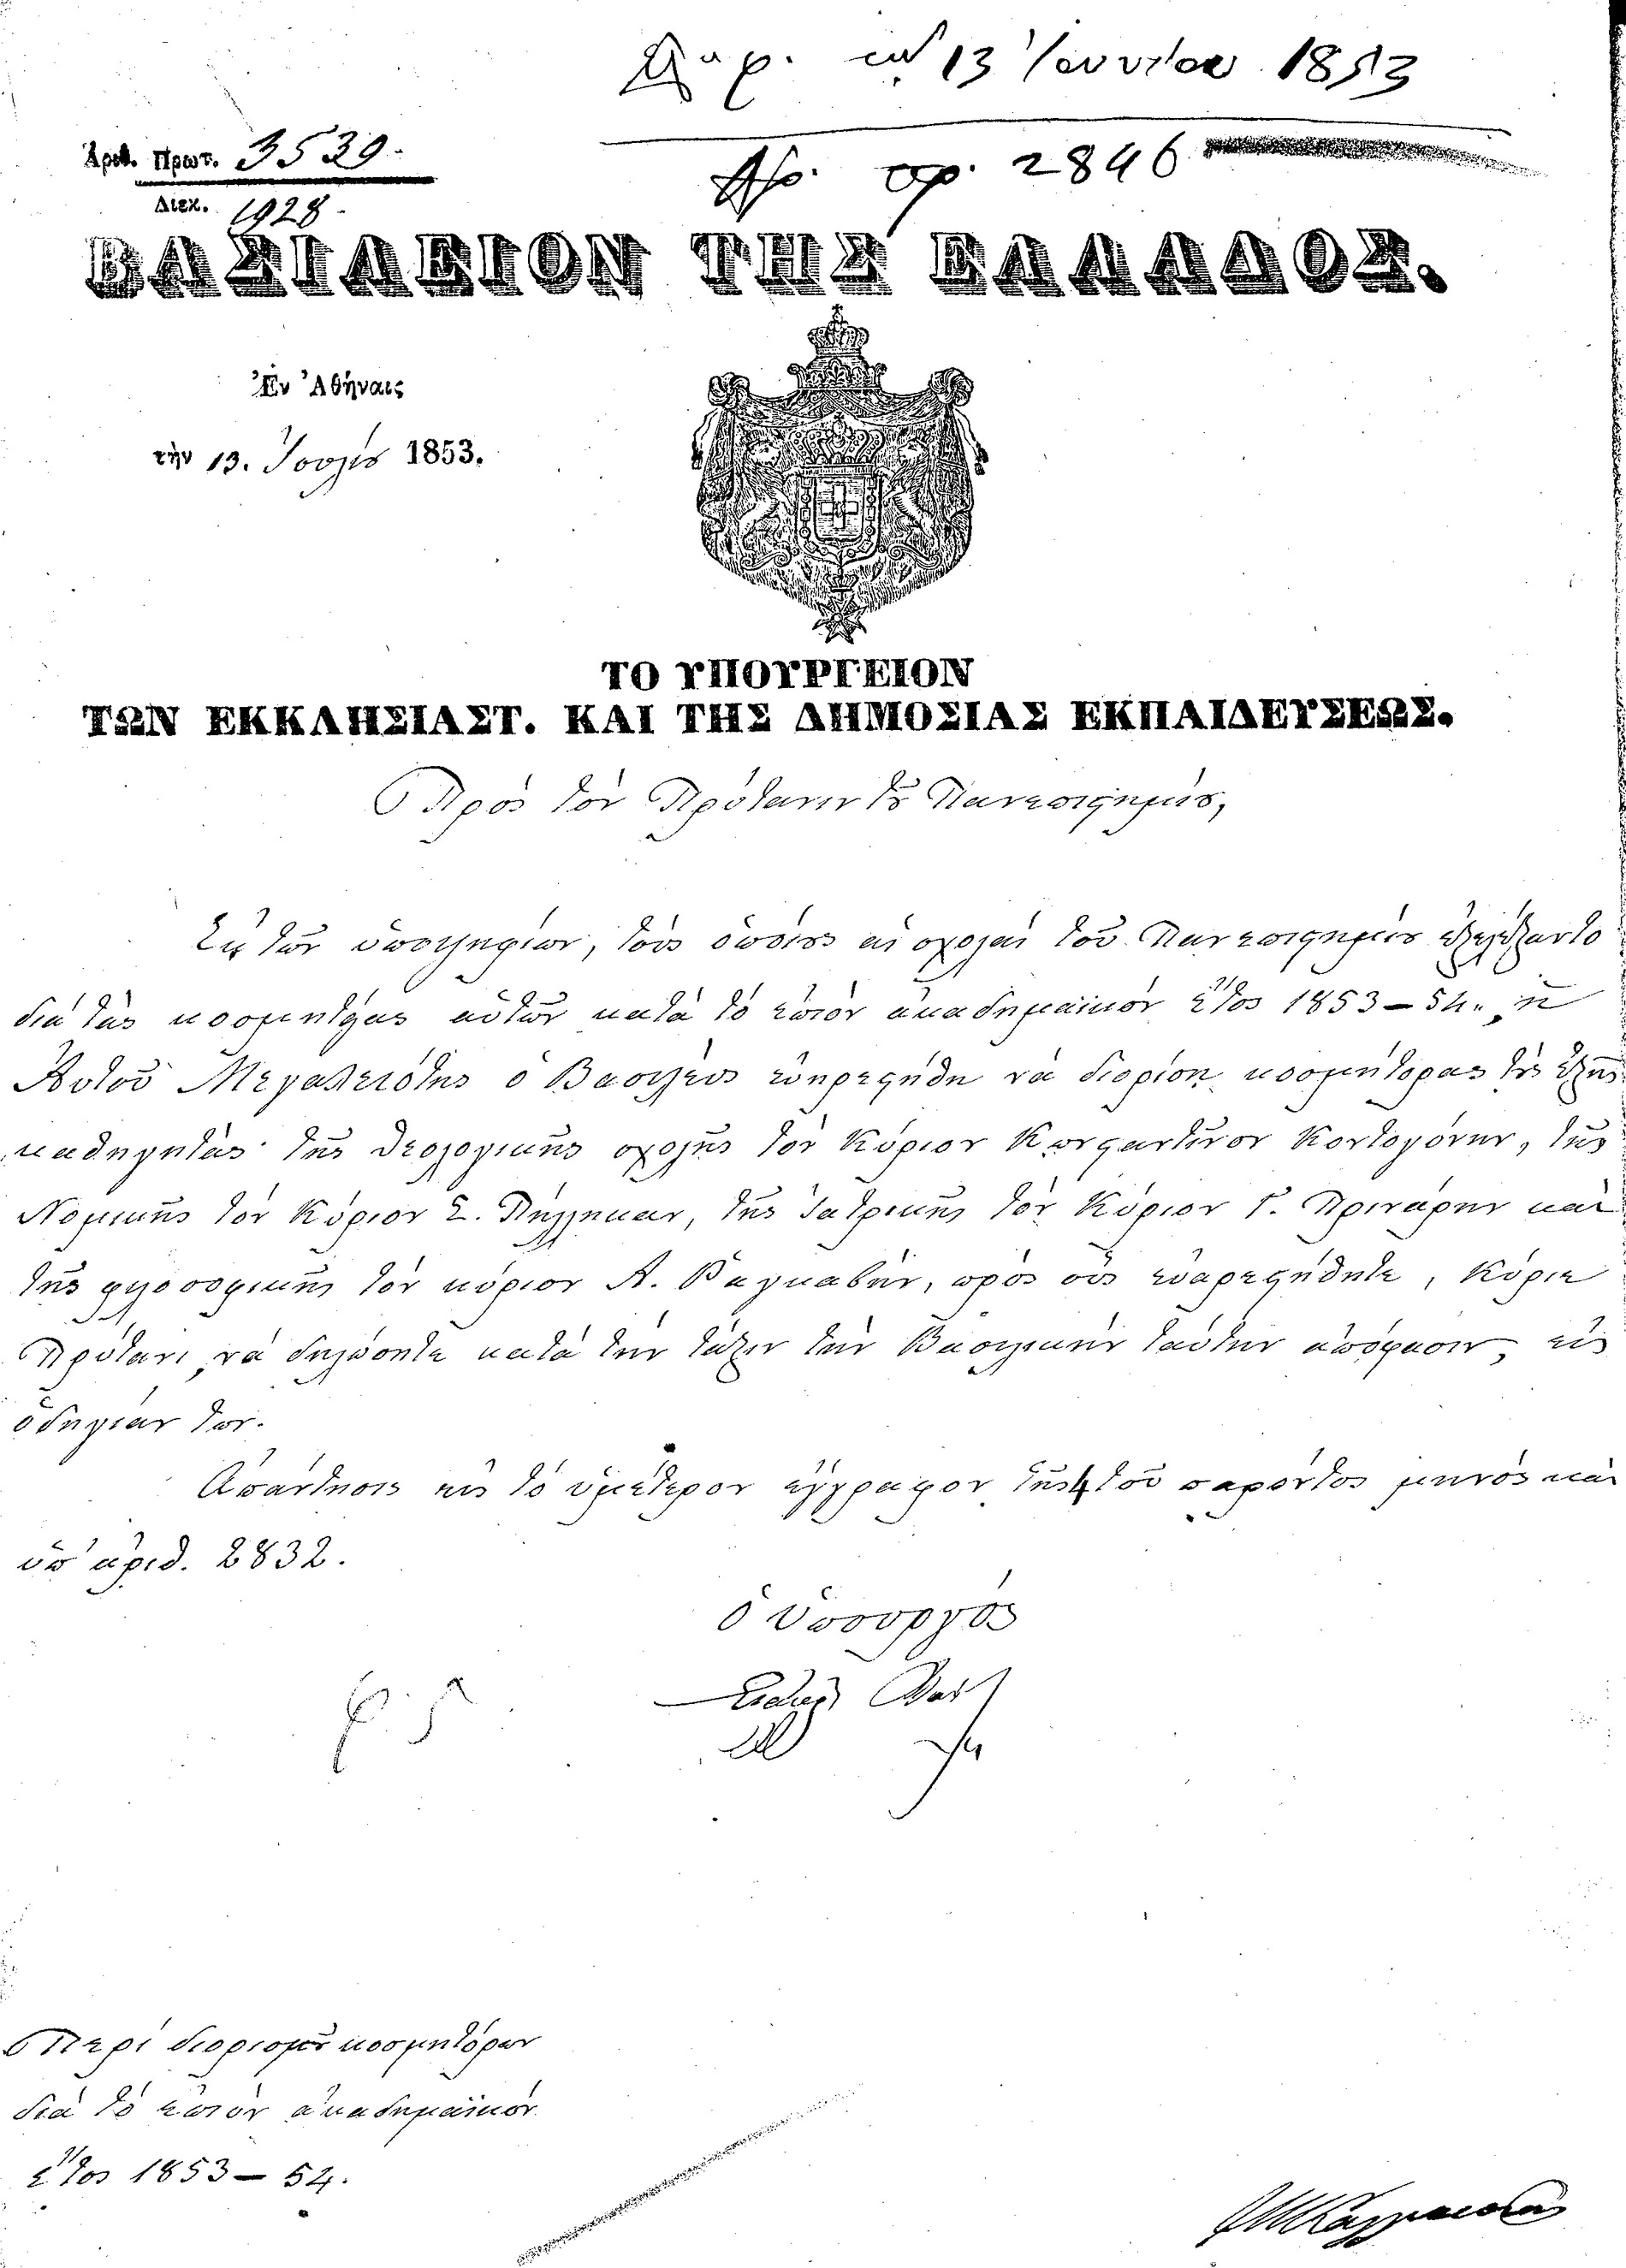 Παρ. τῇ 13 Ἰουνίου 1853
Ἀριθ. Πρωτ. 3529.
Ἀρ. πρ. 2846
Διεκ. 1928.
ΒΑΣΙΛΕΙΟΝ ΤΗΣ ΕΛΛΑΔΟΣ.
Ἐν Ἀθήναις
τὴν 13. Ἰουλίου 1853.
ΤΟ ΥΠΟΥΡΓΕΙΟΝ
ΤΩΝ ΕΚΚΛΗΣΙΑΣΤ. ΚΑΙ ΤΗΣ ΔΗΜΟΣΙΑΣ ΕΚΠΑΙΔΕΥΣΕΩΣ.
Πρὸς τὸν Πρύτανιν τοῦ Πανεπιστημίου,
Ἐκ τῶν ὑποψηφίων, τοὺς ὁποίους αἱ σχολαὶ τοῦ Πανεπιστημίου ἐξελέξαντο
διὰ τὰς κοσμητείας αὐτῶν κατὰ τὸ ἐπιὸν ἀκαδημαϊκὸν ἔτος 1853-54., ἡ
Αὐτοῦ Μεγαλειότης ὁ Βασιλεὺς εὐηρεστήθη νὰ διορίσῃ κοσμήτορας τοὺς ἑξῆς
καθηγητάς· τῆς θεολογικῆς σχολῆς τὸν Κύριον Κωνσταντῖνον Κοντογόνην, τῆς
Νομικῆς τὸν Κύριον Σ. Πήλληκαν, τῆς ἰατρικῆς τὸν Κύριον Γ. Πρινάρην καὶ
τῆς φιλοσοφικῆς τὸν κύριον Α. Ῥαγκαβῆν, πρὸς οὓς εὐαρεστήθητε, Κύριε
Πρύτανι, νὰ δηλώσητε κατὰ τὴν τάξιν τὴν Βασιλικὴν ταύτην ἀπόφασιν, εἰς
ὁδηγίαν των.
Ἀπάντησις εἰς τὸ ὑμέτερον ἔγγραφον τῆς 4 τοῦ παρόντος μηνὸς καὶ
ὑπ' ἀριθ. 2832.
ὁ Ὑπουργὸς
Περὶ διορισμοῦ κοσμητόρων
διὰ τὸ ἐπιὸν ἀκαδημαϊκὸν
ἔτος 1853-54.